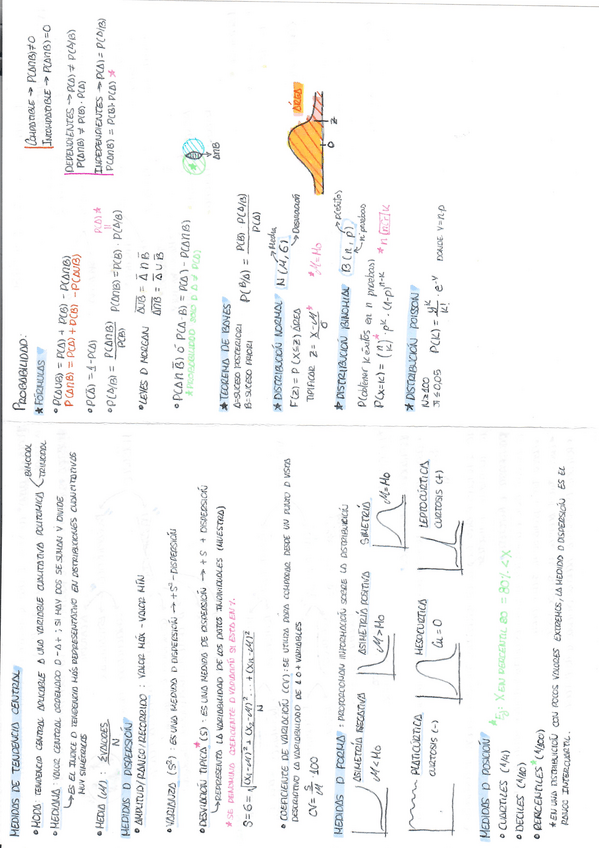 MEDIDAS DE TENDENCIA CENTRAL
• MODA: TENDENCIA CENTRAL APLICABLE A UNA VARIABLE CUALITATIVA POLITOMICA
BIMODAL
TRIMODAL
• MEDIANA: VALOR CENTRAL ORDENADO D -A+; SI HAY DOS SE SUMAN Y DIVIDE
↳ ES EL INDICE D TENDENCIA MÁS REPRESENTATIVO EN DISTRIBUCIONES CUANTITATIVAS
MUY ASIMETRICAS
• MEDIA (M): ΣVALORES / N
MEDIDAS D DISPERSIÓN
• AMPLITUD/RANGO/RECORRIDO: VALOR MÁX - VALOR MÍN
• VARIANZA (S²): ES UNA MEDIDA D DISPERSIÓN → +S² - DISPERSIÓN
• DESVIACIÓN TIPICA* (S): ES UNA MEDIDA DE DISPERSIÓN → +S + DISPERSIÓN
↳ REPRESENTA LA VARIABILIDAD DE LOS DATOS INDIVIDUALES (MUESTRA)
* SE DENOMINA COEFICIENTE D VARIACIÓN SI ESTÁ EN %
S = б = √((X₁-M)² + (X₂-M)² ... + (Xn-M)² / N)
• COEFICIENTE DE VARIACIÓN (CV): SE UTILIZA PARA COMPARAR DESDE UN PUNTO D VISTA
DESCRIPTIVO LA VARIABILIDAD DE 2 O + VARIABLES
CV = S/M · 100
MEDIDAS D FORMA: PROPORCIONAN INFORMACIÓN SOBRE LA DISTRIBUCIÓN
ASIMETRÍA NEGATIVA
M < Mo
ASIMETRÍA POSITIVA
M > Mo
SIMETRÍA
M = Mo
PLATICÚRTICA
CURTOSIS (-)
MESOCÚRTICA
Cu = 0
LEPTOCÚRTICA
CURTOSIS (+)
MEDIDAS D POSICIÓN
* Ej: X EN PERCENTIL 80 = 80% < X
• CUARTILES (1/4)
• DECILES (1/10)
• PERCENTILES* (1/100)
* EN UNA DISTRIBUCIÓN CON POCOS VALORES EXTREMOS, LA MEDIDA D DISPERSIÓN ES EL
RANGO INTERCUARTIL.
PROBABILIDAD:
* FÓRMULAS
• P(A∪B) = P(A) + P(B) - P(A∩B)
P(A∩B) = P(A) + P(B) - P(A∪B)
• P(Ā) = 1 - P(A)
• P(A/B) = P(A∩B) / P(B)
P(A∩B) = P(B) · P(A/B)
P(A)*
• LEYES D MORGAN
COMPATIBLE → P(A∩B) ≠ 0
INCOMPATIBLE → P(A∩B) = 0
DEPENDIENTES → P(A) ≠ P(A/B)
P(A∩B) ≠ P(B) · P(A)
INDEPENDIENTES → P(A) = P(A/B)
P(A∩B) = P(B) · P(A) *
A∩B
* TEOREMA DE BAYES
A = SUCESO POSTERIORI
B = SUCESO PRIORI
P(B/A) = P(B) · P(A/B) / P(A)
* DISTRIBUCIÓN NORMAL
N (M, б)
Media
Desviación
* M = Mo
F(z) = P(X ≤ z) ÁREA
TIPIFICAR z = (X - M) / σ
ÁREA
0
z
* DISTRIBUCIÓN BINOMIAL
B (n, p)
p(éxito)
nº pruebas
P(obtener K éxitos en n pruebas)
P(X=K) = (n k)* · p^k · (1-p)^(n-k)
* DISTRIBUCIÓN POISSON
P(K) = γ^k / k! · e^-γ
DONDE γ = n.p